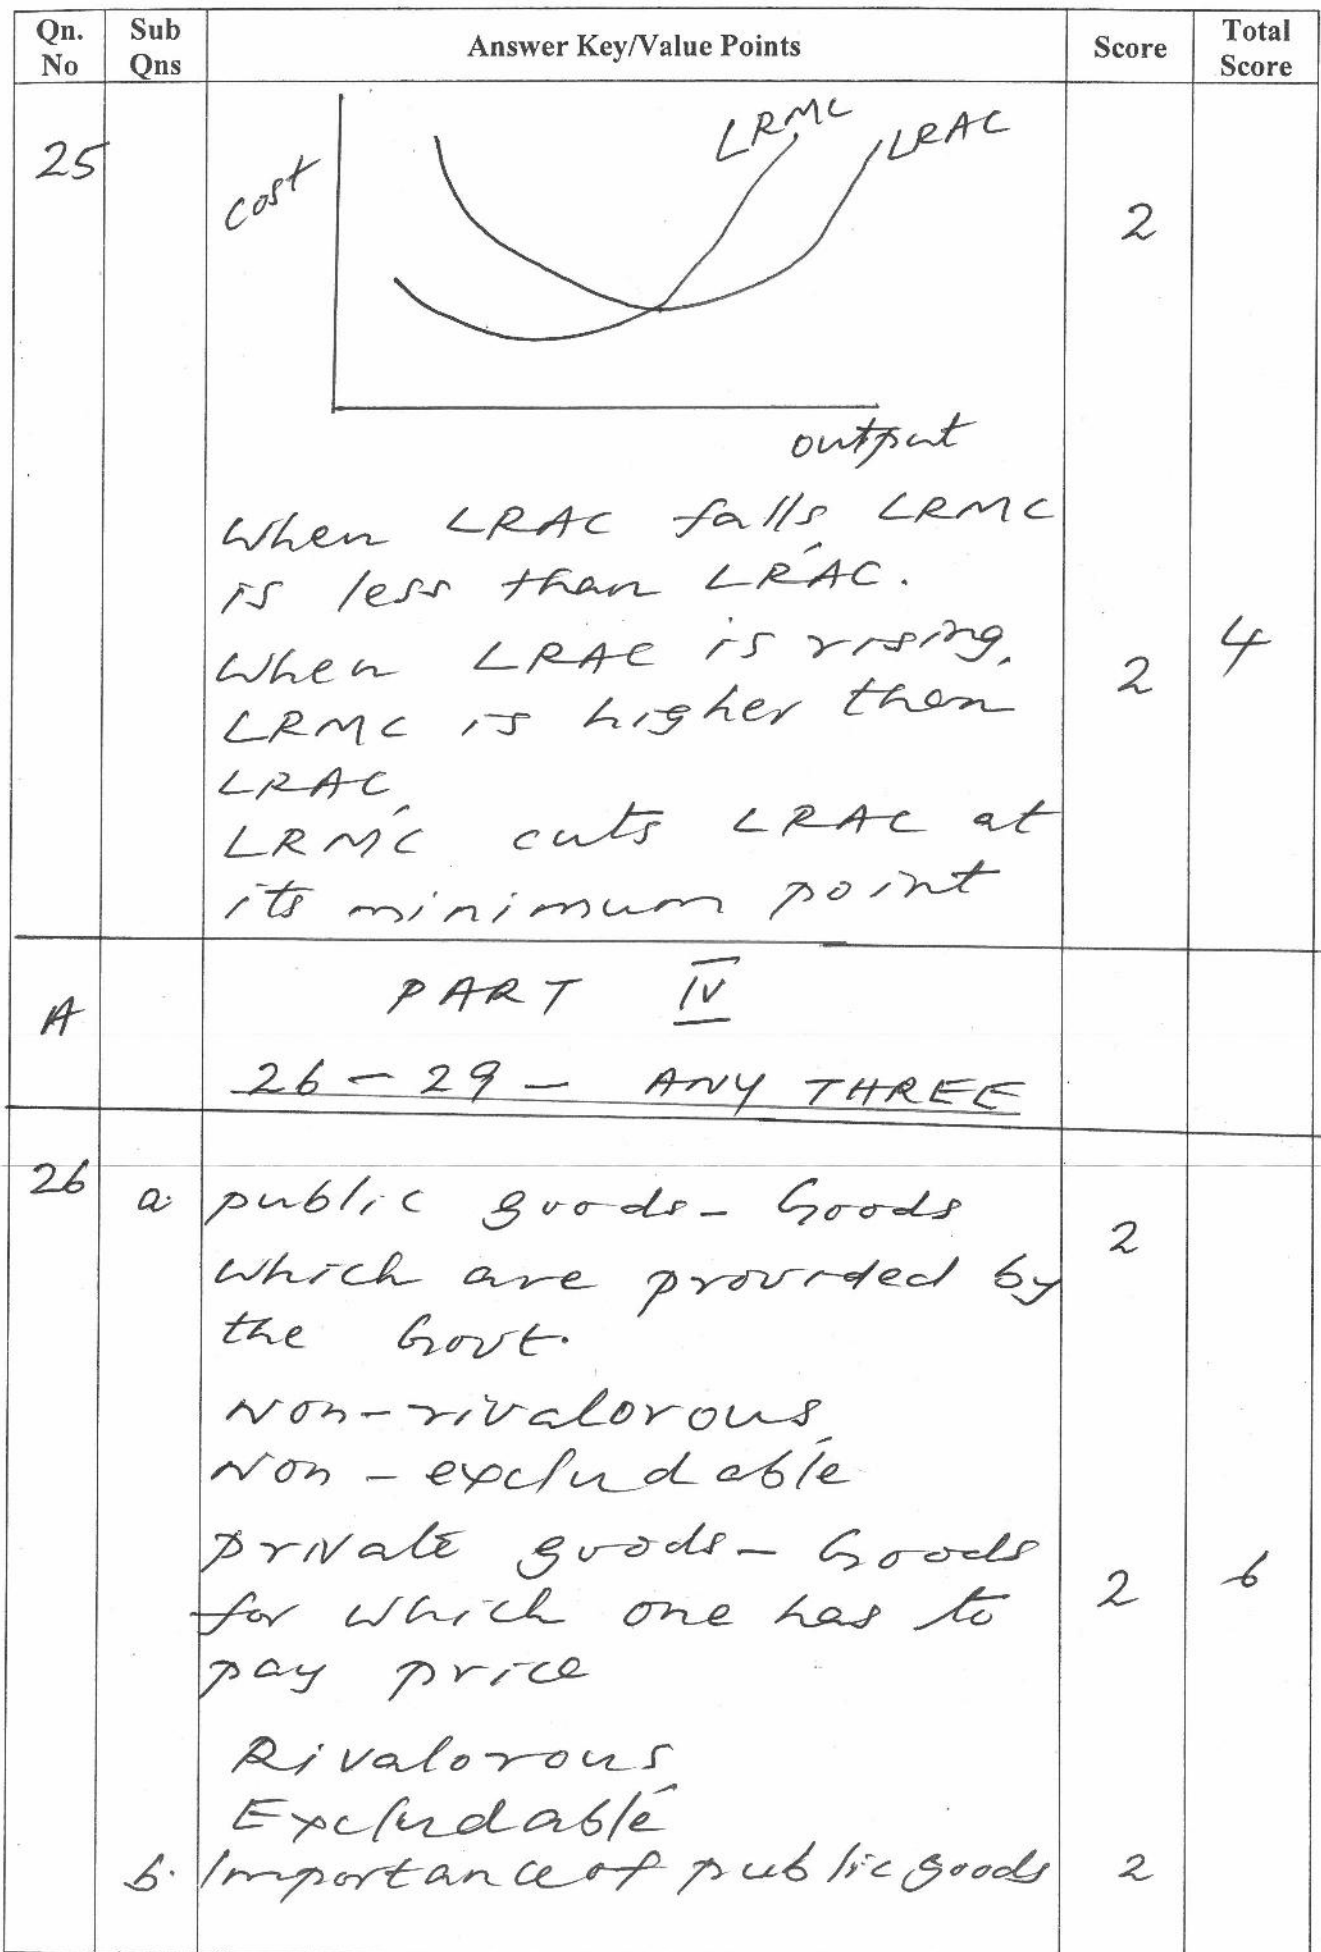 Qn. No
Sub Qns
Answer Key/Value Points
Score
Total Score
25
cost
LRMC
LRAC
2
output
When LRAC falls LRMC
is less than LRAC.
When LRAC is rising,
LRMC is higher than
LRAC,
LRMC cuts LRAC at
its minimum point
2
4
A
PART IV
26 - 29 - ANY THREE
26
a. public goods - Goods
which are provided by
the Govt.
2
Non-rivalorous,
Non-excludable
private goods - Goods
for which one has to
pay price
2
6
Rivalorous,
Excludable
b. Importance of public goods
2